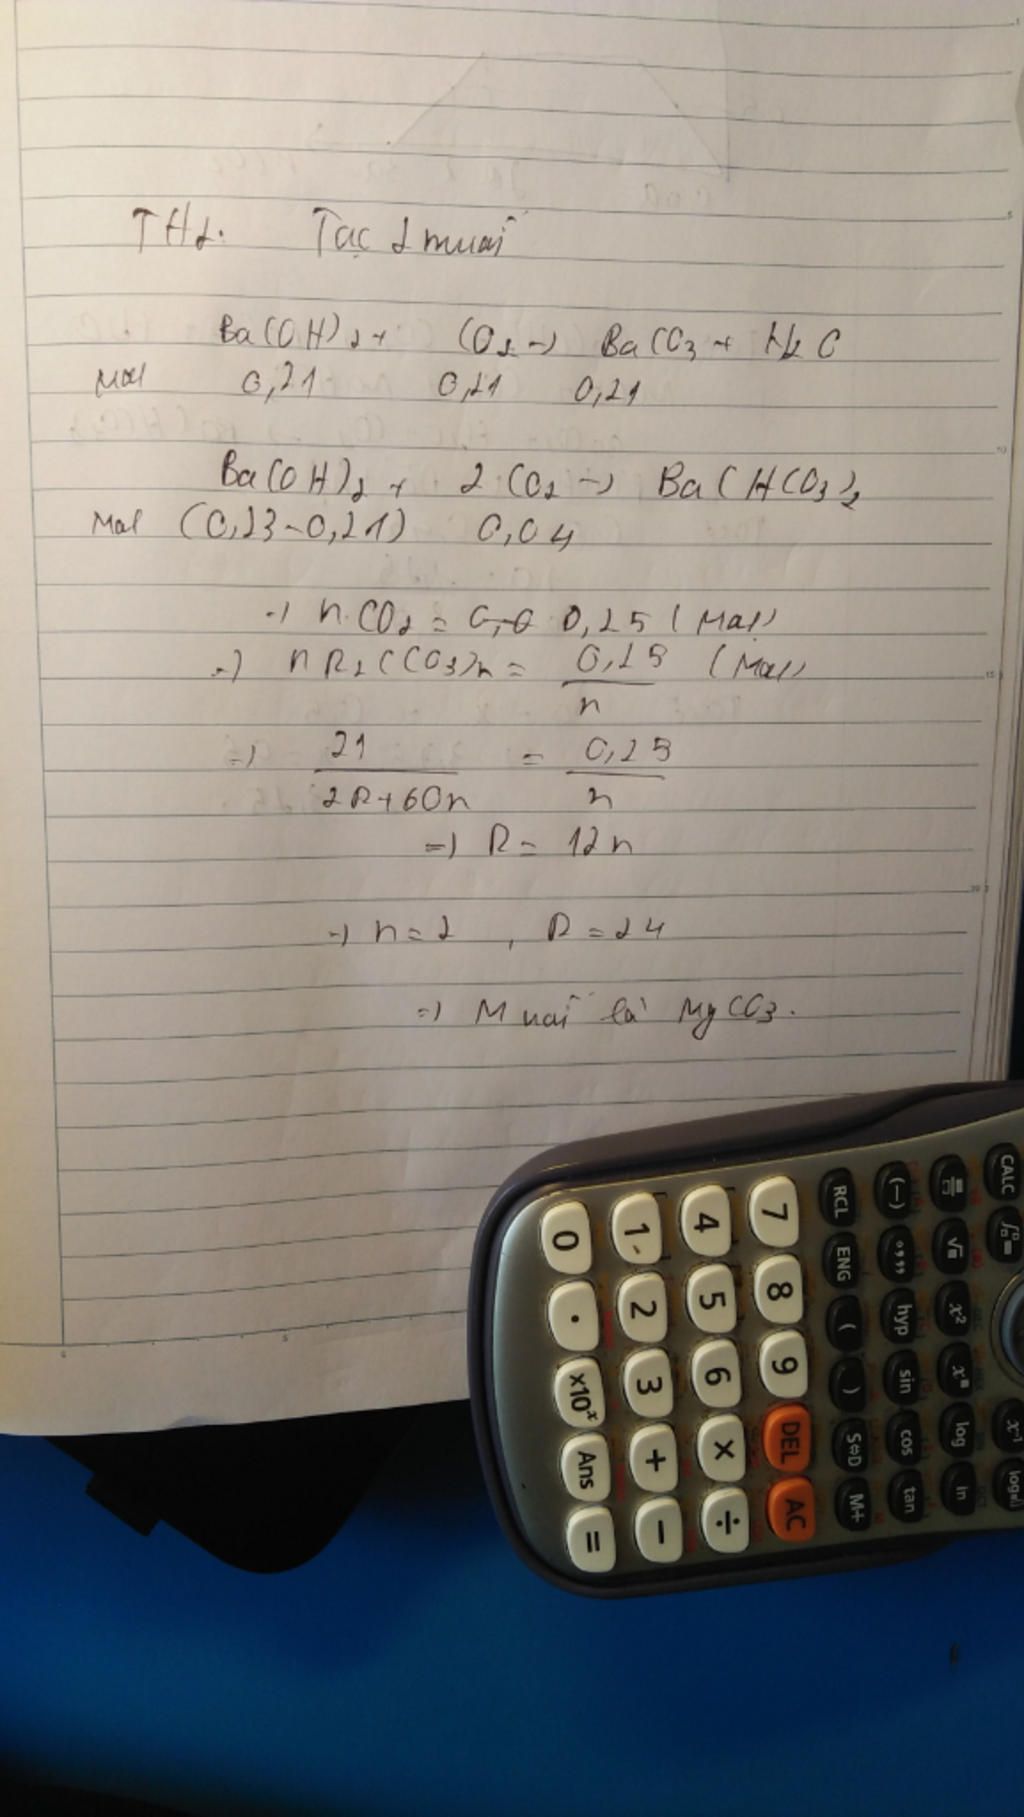 TH2. Tạo 2 muối
Ba(OH)2 + CO2 -> BaCO3 + H2O
Mol 0,21 0,21 0,21
Ba(OH)2 + 2CO2 -> Ba(HCO3)2
Mol (0,23-0,21) 0,04
-> nCO2 = 0,25 (Mol)
-> nR2(CO3)n = 0,25/n (Mol)
=> 21/2R+60n = 0,25/n
=> R = 12n
-> n=2, R=24
=> Muối là MgCO3.
CALC
RCL ENG ( ) S⇔D M+
(-) °,,, hyp sin cos tan
√ x² log ln
x⁻¹
7 8 9 DEL AC
4 5 6 × ÷
1 2 3 + −
0 . ×10ˣ Ans =